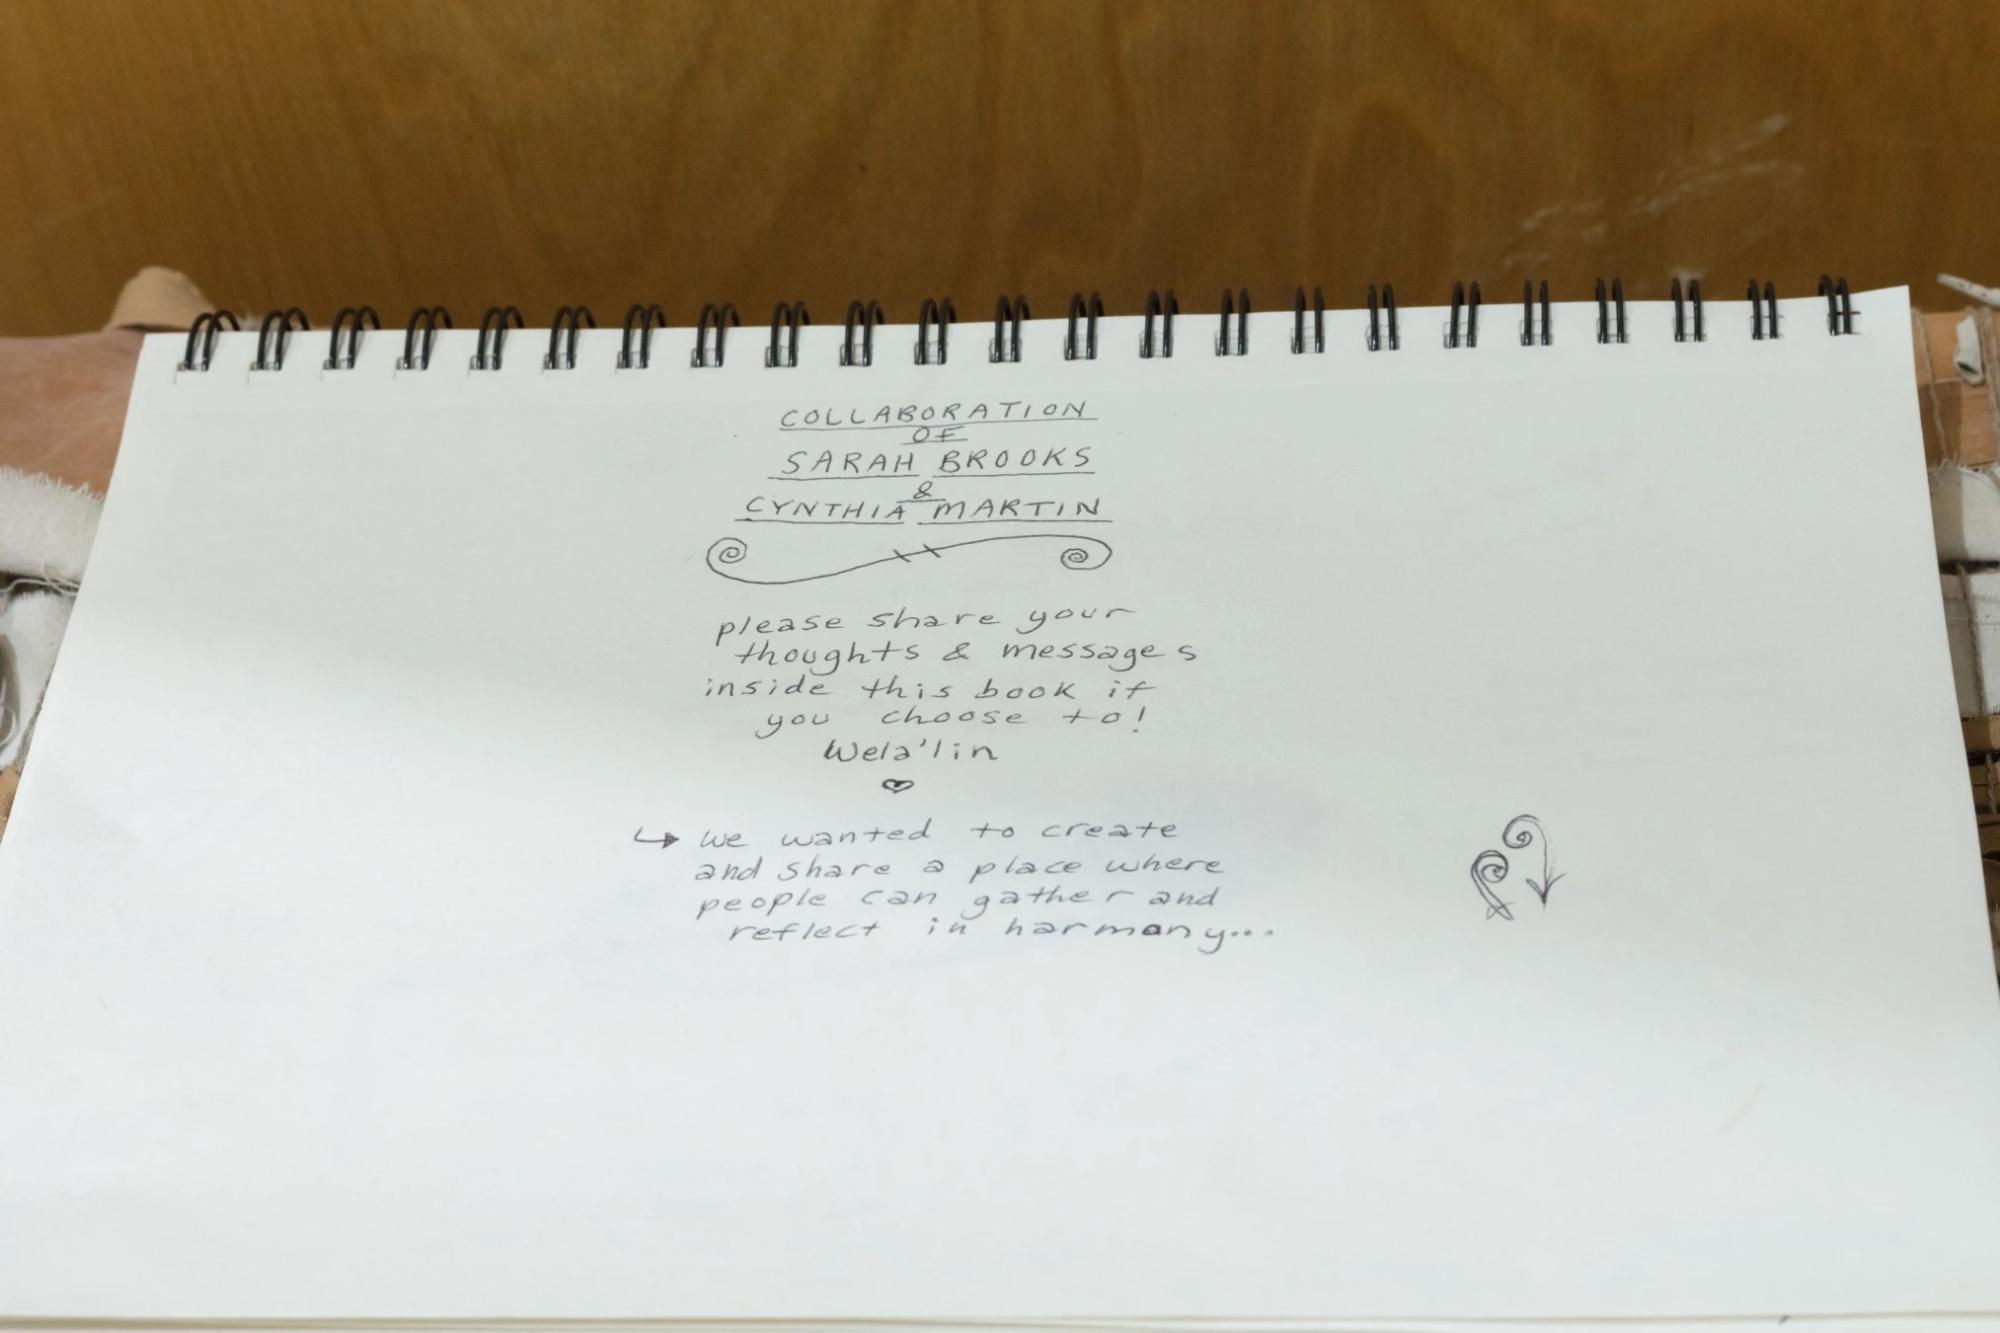 COLLABORATION
OF
SARAH BROOKS
&
CYNTHIA MARTIN
please share your
thoughts & messages
inside this book if
you choose to!
Wela'lin
we wanted to create
and share a place where
people can gather and
reflect in harmony...